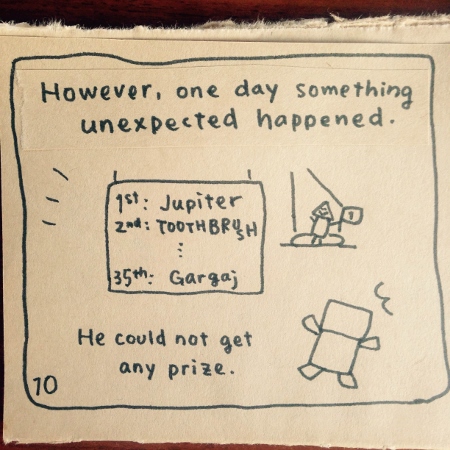 However, one day something
unexpected happened.
1st: Jupiter
2nd: TOOTHBRUSH
⋮
35th: Gargaj
He could not get
any prize.
10